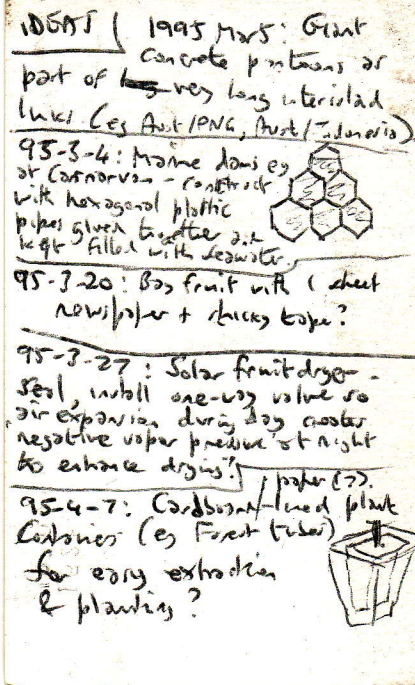 IDEAS 1995 Mar 5: Giant
concrete pontoons as
part of very long interisland
links (eg Aust/PNG, Aust/Indonesia)
95-3-4: Marine dams eg
at Carnarvon - construct
with hexagonal plastic
pipes glued together and
kept filled with seawater.
95-3-20: Bag fruit with 1 sheet
newspaper + sticky tape?
95-3-27: Solar fruit dryer -
Seal, install one-way valve so
air expansion during day creates
negative vapor pressure at night
to enhance drying?
/paper (?).
95-4-7: Cardboard-lined plant
Containers (eg Forest tubes)
for easy extraction
& planting?